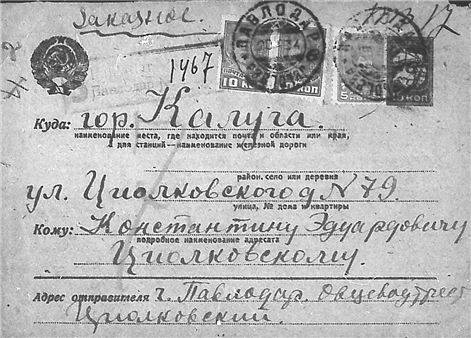 Заказное.
1467
ПАВЛОДАР
10 КОП
5 КОП
Куда: гор. Калуга.
наименование места, где находится почта и области или края,
для станций—наименование железной дороги
район, село или деревня
ул. Циолковского д N 79.
улица, № дома и квартиры
Кому: Константину Эдуардовичу
подробное наименование адресата
Циолковскому.
Адрес отправителя г. Павлодар. Овцеводтрест
Циолковский.